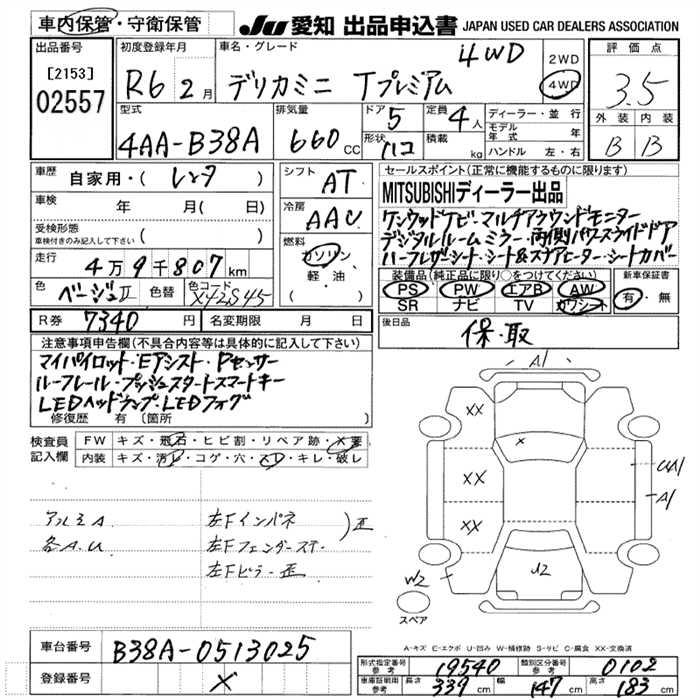 車内保管・守衛保管
JU 愛知 出品申込書 JAPAN USED CAR DEALERS ASSOCIATION
出品番号
[2153]
02557
初度登録年月
R6 2月
車名・グレード
4WD
デリカミニ Tプレミアム
2WD
4WD
評価点
3.5
外装 内装
B B
型式
4AA-B38A
排気量
660 CC
ドア 5
形状 ハコ
定員 4人
積載 kg
ディーラー・並行
モデル年式 年
ハンドル 左・右
車歴
自家用・( レンタ )
車検
年 月( 日)
受検形態
車検付きのみ記入して下さい ( )
走行
4万9千807km
色 ベージュII 色替 色コード X42S45
シフト AT
冷房 AAC
燃料
ガソリン
軽・油
( )
R券 7340円 名変期限 月 日
セールスポイント(正常に機能するものに限ります)
MITSUBISHIディーラー出品
ケンウッドナビ・マルチアラウンドモニター
デジタルルームミラー・両側パワースライドドア
ハーフレザーシート・シート&ステアヒーター・シートカバー
装備品(純正品に限り○をつけてください)
PS PW エアB AW
SR ナビ TV カワシート
新車保証書
有・無
後日品
保・取
注意事項申告欄(不具合内容等は具体的に記入して下さい)
マイパイロット・Eアシスト・Pセンサー
ルーフレール・プッシュスタートスマートキー
LEDヘッドランプ・LEDフォグ
修復歴 有 〔箇所 〕
検査員記入欄
FW キズ・飛石・ヒビ割・リペア跡・X要
内装 キズ・汚レ・コゲ・穴・スレ・キレ・破レ
アルミA
各A.U
左Fインパネ
左Fフェンダーステー
左Fピラー歪
)歪
A1
XX
XX
XX
X
A1
U2
W2
スペア
A-キズ E-エクボ U-凹み W-補修跡 S-サビ C-腐食 XX-交換済
車台番号 B38A-0513025
登録番号 X
形式指定番号 参考 19540
類別区分番号 参考 0102
車庫証明用 参考 長さ 339cm 幅 147cm 高さ 183cm